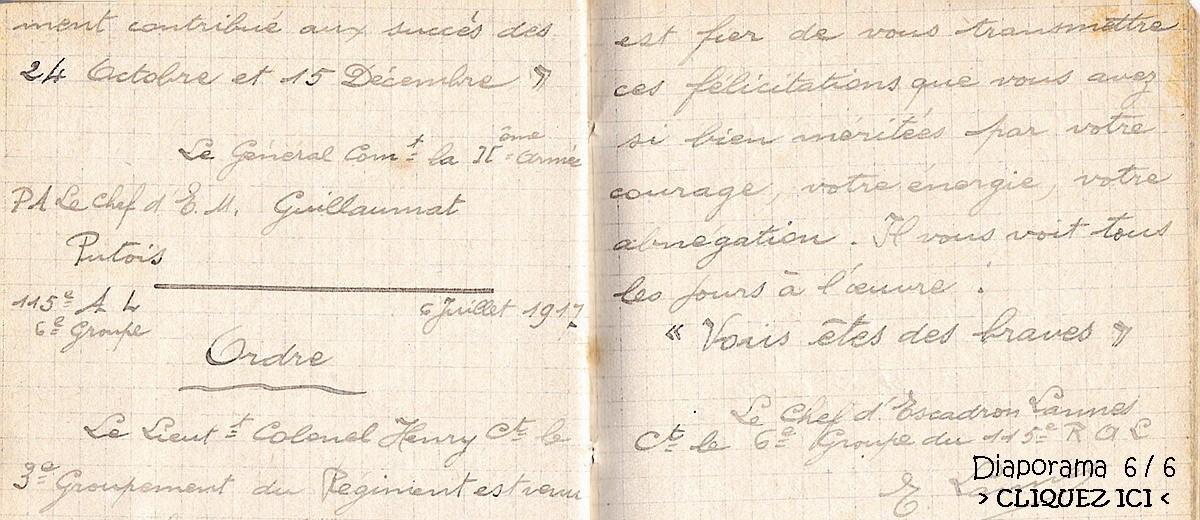 ment contribué aux succés des
24 Octobre et 15 Décembre »
Le Général Comt la IIème Armée
PA Le Chef d'E.M. Guillaumat
Putois
115e A L
6e Groupe
6 Juillet 1917
Ordre
Le Lieutt Colonel Henry Ct le
3e Groupement du Régiment est venu
est fier de vous transmettre
ces félicitations que vous avez
si bien méritées par votre
courage, votre énergie, votre
abnégation. Il vous voit tous
les jours à l'œuvre :
« Vous êtes des braves »
Le Chef d'Escadron Lannes
Ct le 6e Groupe du 115e R A L
E. Lannes
Diaporama 6 / 6
> CLIQUEZ ICI <